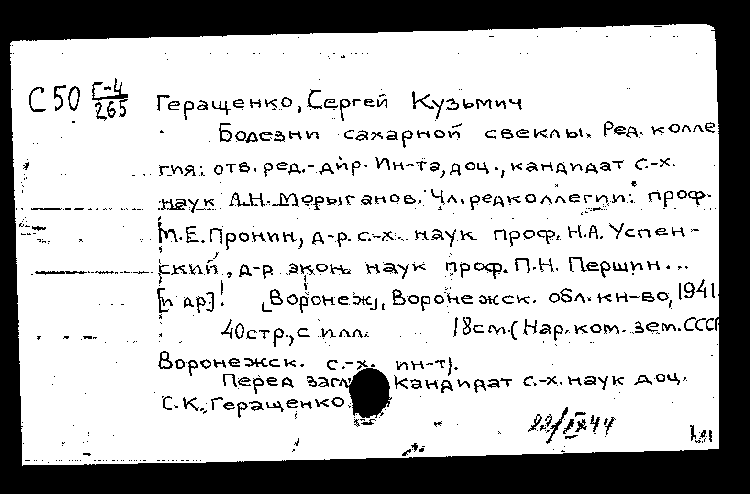 С50 Г-4/265 Геращенко, Сергей Кузьмич
Болезни сахарной свеклы. Ред. колле
гия: отв. ред.-дир. Ин-та, доц., кандидат с.-х.
наук А.Н. Морыганов. Чл. редколлегии: проф.
М.Е. Пронин, д-р. с.-х. наук проф. Н.А. Успен-
ский, д-р экон. наук проф. П.Н. Першин...
[и др]! [Воронеж], Воронежск. обл. кн-во, 1941.
40стр., с илл. 18см. (Нар. ком. зем. СССР
Воронежск. с.-х. ин-т).
Перед загл. кандидат с.-х. наук доц.
С.К. Геращенко.
22/IX 44